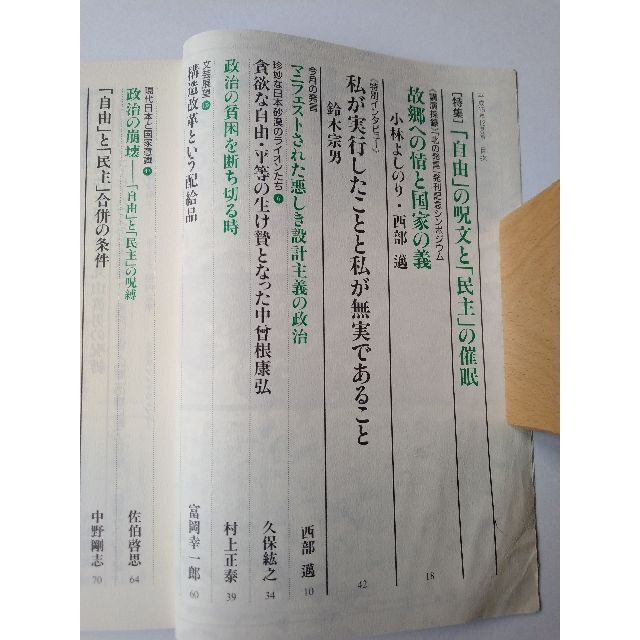 ［特集］「自由」の呪文と「民主」の催眠
故郷への情と国家の義
小林よしのり・西部 邁
18
〈特別インタビュー〉
私が実行したことと私が無実であること
鈴木宗男
42
今月の発言
マニフェストされた悪しき設計主義の政治
西部 邁
10
珍妙な日本砂漠のライオンたち
貪欲な自由・平等の生け贄となった中曾根康弘
久保紘之
34
政治の貧困を断ち切る時
村上正泰
39
文芸展望
構造改革という配給品
富岡幸一郎
60
現代日本と国家意識
政治の崩壊──「自由」と「民主」の呪縛
佐伯啓思
64
「自由」と「民主」合併の条件
中野剛志
70